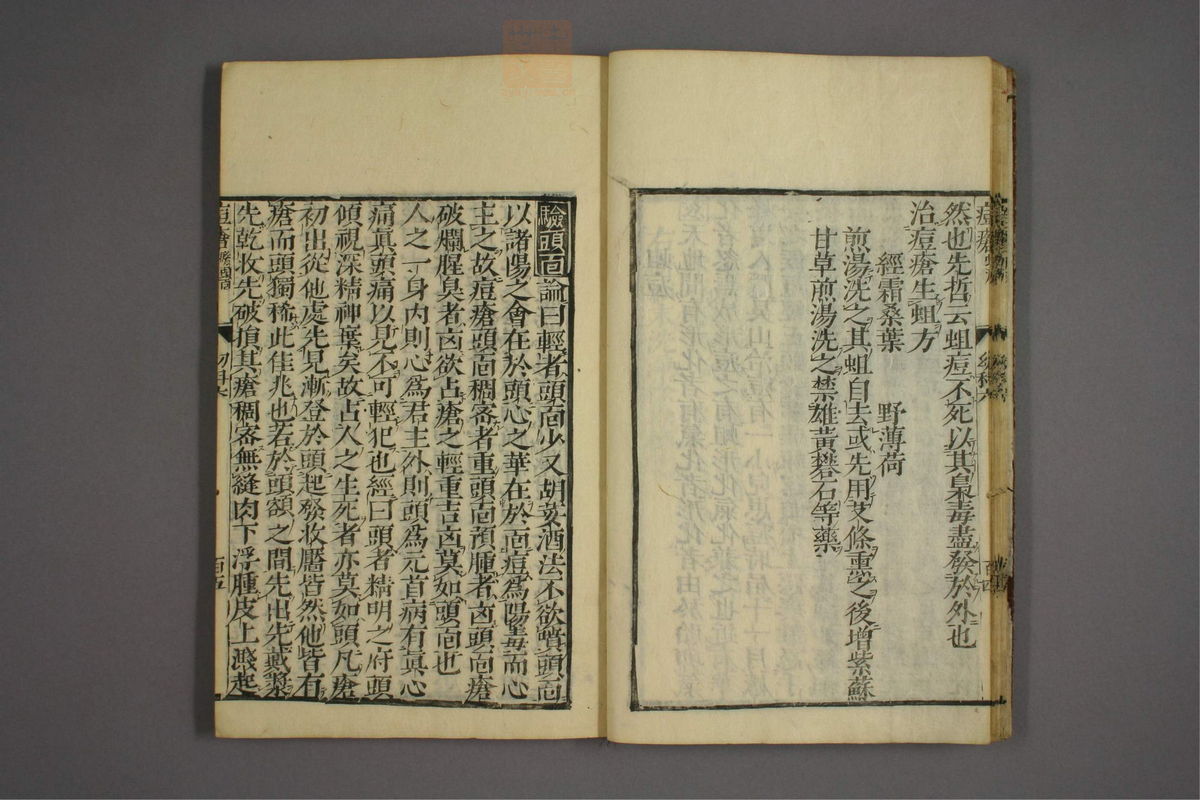 然也先哲云蛆痘不死以其梟毒盡發於外也
治痘瘡生蛆方
經霜桑葉　野薄荷
煎湯洗之其蛆自去或先用艾條熏之後增紫蘇
甘草煎湯洗之禁雄黃礬石等藥
驗頭靣
論曰輕者頭靣少又胡荽酒法不欲噀頭靣
以諸陽之會在於頭心之華在於靣痘爲陽毒而心
主之故痘瘡頭靣稠密者重頭靣預腫者凶頭靣瘡
破爛腥臭者凶欲占瘡之輕重吉凶莫如頭靣也
人之一身内則心爲君主外則頭爲元首病有眞心
痛眞頭痛以見不可輕犯也經曰頭者精明之府頭
傾視深精神奪矣故占人之生死者亦莫如頭凡瘡
初出從他處先見漸登於頭起發收靨皆然他皆有
瘡而頭獨稀此佳兆也若於頭額之間先出先戴漿
先乾收先破損其瘡稠密無縫肉下浮腫皮上溅起
幼科六
百五